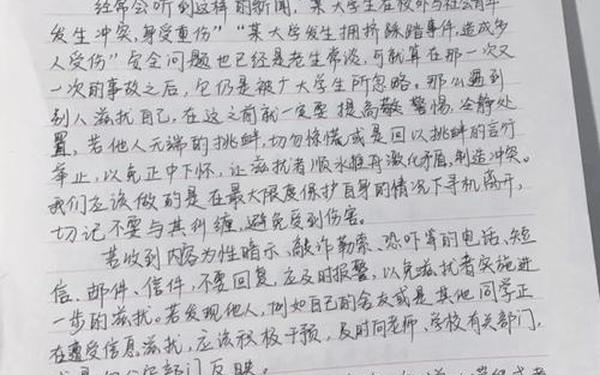 经常会听到这样的新闻，某大学生在校外与社会青年
发生冲突，身受重伤”“某大学发生拥挤踩踏事件，造成多
人受伤”安全问题也已经是老生常谈，可就算在那一次又
一次的事故之后，它仍是被广大学生所忽略。那么遇到
别人滋扰自己，在这之前就一定要提高警惕，冷静处
置，若他人无端的挑衅，切勿惊慌或是回以挑衅的言行
举止，以免正中下怀，让滋扰者顺水推舟激化矛盾，制造冲突。
我们应该做的是在最大限度保护自身的情况下寻机离开，
切记不要与其纠缠，避免受到伤害。
若收到内容为性暗示、敲诈勒索、恐吓等的电话、短
信、邮件、信件，不要回复，应及时报警，以免滋扰者实施进
一步的滋扰。若发现他人，例如自己的舍友或是其他同学正
在遭受信息滋扰，应该积极干预，及时向老师、学校有关部门，
或是向公安部门反映。